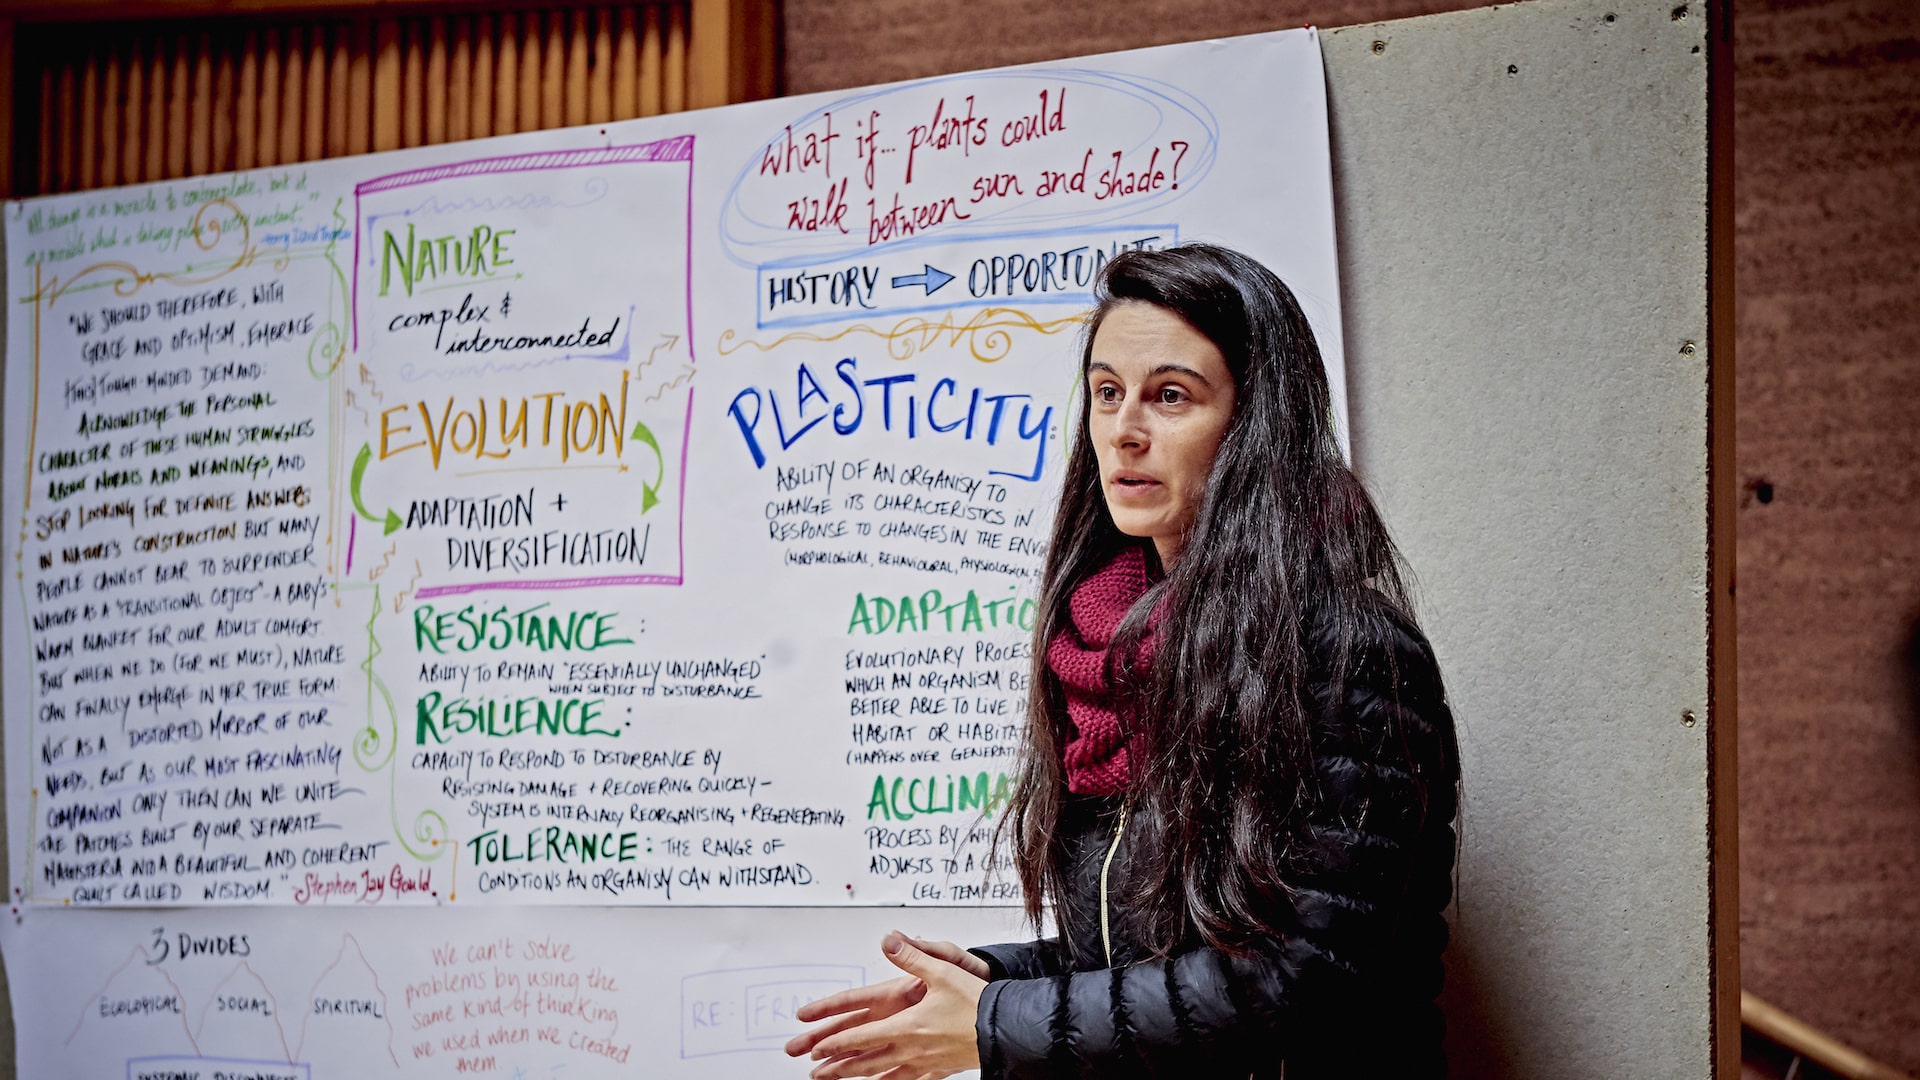 "WE SHOULD THEREFORE, WITH
GRACE AND OPTIMISM, EMBRACE
[THIS] TOUGH-MINDED DEMAND:
ACKNOWLEDGE THE PERSONAL
CHARACTER OF THESE HUMAN STRUGGLES
ABOUT MORALS AND MEANINGS, AND
STOP LOOKING FOR DEFINITE ANSWERS
IN NATURE'S CONSTRUCTION BUT MANY
PEOPLE CANNOT BEAR TO SURRENDER
NATURE AS A "TRANSITIONAL OBJECT"-A BABY'S
WARM BLANKET FOR OUR ADULT COMFORT.
BUT WHEN WE DO (FOR WE MUST), NATURE
CAN FINALLY EMERGE IN HER TRUE FORM:
NOT AS A DISTORTED MIRROR OF OUR
NEEDS, BUT AS OUR MOST FASCINATING
COMPANION ONLY THEN CAN WE UNITE
THE PATCHES BUILT BY OUR SEPARATE
MAGISTERIA INTO A BEAUTIFUL AND COHERENT
QUILT CALLED WISDOM." -Stephen Jay Gould.
NATURE
complex &
interconnected
EVOLUTION
ADAPTATION +
DIVERSIFICATION
RESISTANCE:
ABILITY TO REMAIN "ESSENTIALLY UNCHANGED"
WHEN SUBJECT TO DISTURBANCE
RESILIENCE:
CAPACITY TO RESPOND TO DISTURBANCE BY
RESISTING DAMAGE + RECOVERING QUICKLY-
SYSTEM IS INTERNALLY REORGANISING + REGENERATING.
TOLERANCE: THE RANGE OF
CONDITIONS AN ORGANISM CAN WITHSTAND.
What if... plants could
walk between sun and shade?
HISTORY → OPPORTUNITY
PLASTICITY:
ABILITY OF AN ORGANISM TO
CHANGE ITS CHARACTERISTICS IN
RESPONSE TO CHANGES IN THE ENV
(MORPHOLOGICAL, BEHAVIOURAL, PHYSIOLOGICAL,
ADAPTATIO
EVOLUTIONARY PROCESS
WHICH AN ORGANISM BE
BETTER ABLE TO LIVE IN
HABITAT OR HABITAT
(HAPPENS OVER GENERATI
ACCLIMA
PROCESS BY WHICH
ADJUSTS TO A CHA
(EG. TEMPERA
3 DIVIDES
ECOLOGICAL SOCIAL SPIRITUAL
We can't solve
problems by using the
same kind of thinking
we used when we created
them.
RE: FRA
SYSTEMIC DISCONNECTS